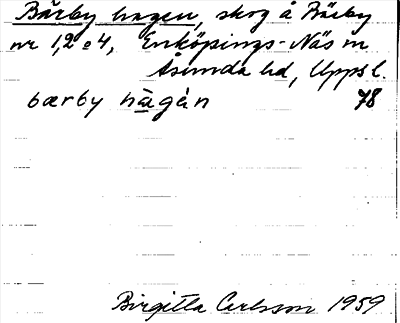 Bärby hagen, skog å Bärby
nr 1,2 o 4, Enköpings-Näs sn
Åsunda hd, Upps l.
bærby hàgán 78
Birgitta Carlsson 1959